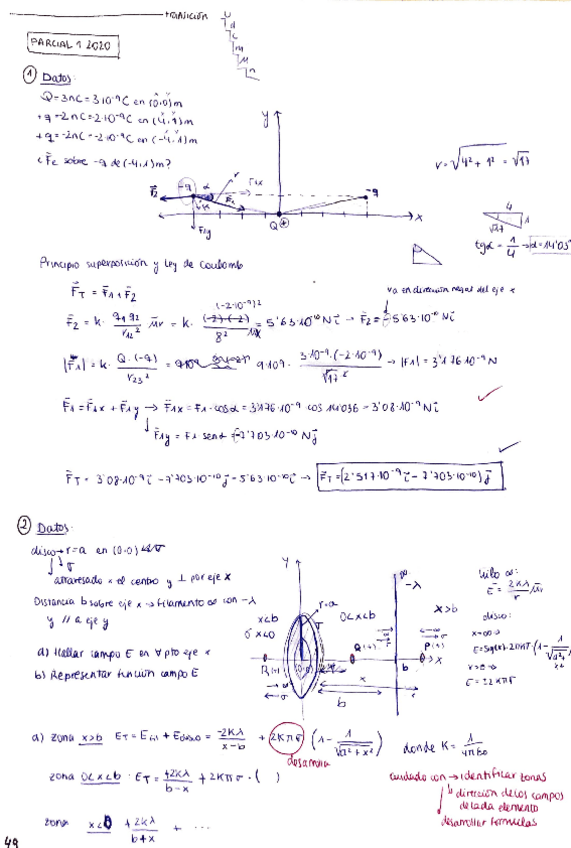 TRANSICIÓN
u
d
c
m
μ
n
PARCIAL 1 2020
① Datos:
Q=3nC=3·10⁻⁹C en (0,0)m
+q=-2nC=-2·10⁻⁹C en (4,1)m
+q=-2nC=-2·10⁻⁹C en (-4,1)m
¿F⃗e sobre -q de (-4,1)m?
y
r=√(4²+1²)=√17
-q
α
r
F1x
F⃗2
F⃗1
-q
F1y
Q ⊕
x
4
1
√17
tgα=1/4→α=14'03º
Principio superposición y Ley de Coulomb
F⃗T = F⃗1+F⃗2
va en dirección negat del eje x
F⃗2 = k· q1q2/r12² μ⃗r = k· (-2)·(-2)/8² (-2·10⁻⁹)² = 5'63·10⁻¹⁰ N i⃗ → F⃗2=-5'63·10⁻¹⁰ N i⃗
|F⃗1| = k· Q·(-q)/r23² = 9·10⁹· 3·10⁻⁹·(-2·10⁻⁹)/√17² → |F1|=3'176·10⁻⁹ N
F⃗1=F⃗1x+F⃗1y → F⃗1x=F1·cosα=3'176·10⁻⁹ cos 14'036=3'08·10⁻⁹ N i⃗
F⃗1y=F1 senα=-7'703·10⁻¹⁰ N j⃗
F⃗T = 3'08·10⁻⁹ i⃗-7'703·10⁻¹⁰ j⃗-5'63·10⁻¹⁰ i⃗ → F⃗T=(2'517·10⁻⁹ i⃗-7'703·10⁻¹⁰) j⃗
② Datos:
disco→r=a en (0,0)
σ
atravesado x el centro y ⊥ por eje x
Distancia b sobre eje x → filamento ∞ con -λ
y // a eje y
a) Hallar campo E en ∀ pto eje x
b) Representar función campo E
y
r=a
∞
-λ
x<b
x<0
0<x<b
x>b
σ
Q(+)
P(+)
R(+)
b
x
x
b
hilo ∞:
E⃗=2Kλ/r μ⃗r
disco:
x→∞
x→0
E=±2Kπσ
a) zona x>b ET=Ehil+Edisco= -2Kλ/(x-b) + 2Kπσ (1- 1/√(a²+x²)) donde K=1/4πε0
desarrolla
zona 0<x<b · ET= +2Kλ/(b-x) + 2Kπσ·( )
cuidado con → identificar zonas
dirección de los campos
de cada elemento
desarrollar fórmulas
zona x<0 +2Kλ/(b+x) + ...
48